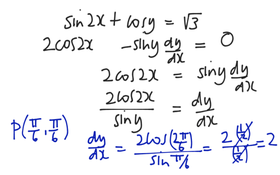 sin2x + cosy = √3
2cos2x - siny dy/dx = 0
2cos2x = siny dy/dx
2cos2x/siny = dy/dx
P(π/6, π/6)
dy/dx = 2cos(2π/6)/sin π/6 = 2(1/2)/(1/2) = 2